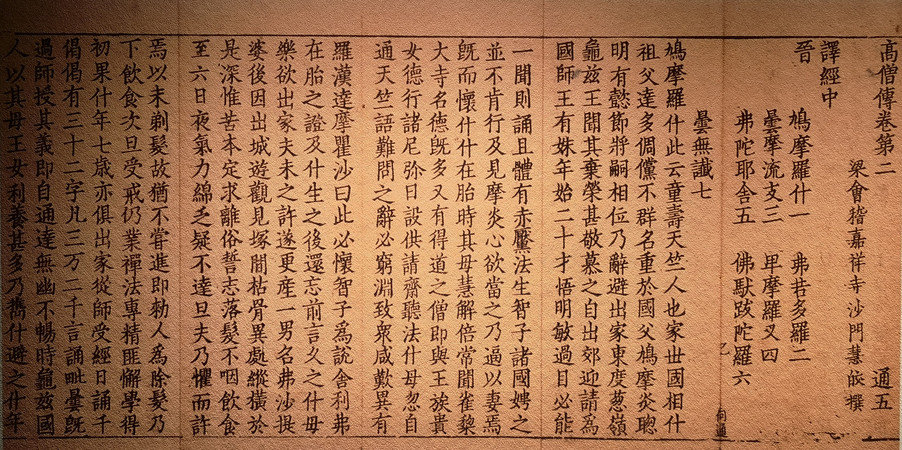 高僧傳卷第二 通五
梁會稽嘉祥寺沙門慧皎撰
譯經中
晉 鳩摩羅什一 弗若多羅二
曇摩流支三 卑摩羅叉四
弗陀耶舍五 佛馱跋陀羅六
曇無讖七
鳩摩羅什此云童壽天竺人也家世國相什
祖父達多倜儻不群名重於國父鳩摩炎聰
明有懿節將嗣相位乃辭避出家東度葱嶺
龜玆王聞其棄榮甚敬慕之自出郊迎請為
國師王有妹年始二十才悟明敏過目必能
一聞則誦且體有赤黶法生智子諸國娉之
並不肯行及見摩炎心欲當之乃逼以妻焉
既而懷什什在胎時其母慧解倍常聞雀棃
大寺名德既多又有得道之僧即與王族貴
女德行諸尼弥日設供請齋聽法什母忽自
通天竺語難問之辭必窮淵致衆咸歎異有
羅漢達摩瞿沙曰此必懷智子為說舍利弗
在胎之證及什生之後還忘前言久之什母
樂欲出家夫未之許遂更産一男名弗沙提
婆後因出城遊觀見塚間枯骨異處縱橫於
是深惟苦本定求離俗誓志落髮不咽飲食
至六日夜氣力綿乏疑不達旦夫乃懼而許
焉以未剃髮故猶不嘗進即勑人為除髮乃
下飲食次旦受戒仍業禪法專精匪懈學得
初果什年七歲亦俱出家從師受經日誦千
偈偈有三十二字凡三万二千言誦毗曇既
過師授其義即自通達無幽不暢時龜玆國
人以其母王女利養甚多乃攜什避之什年